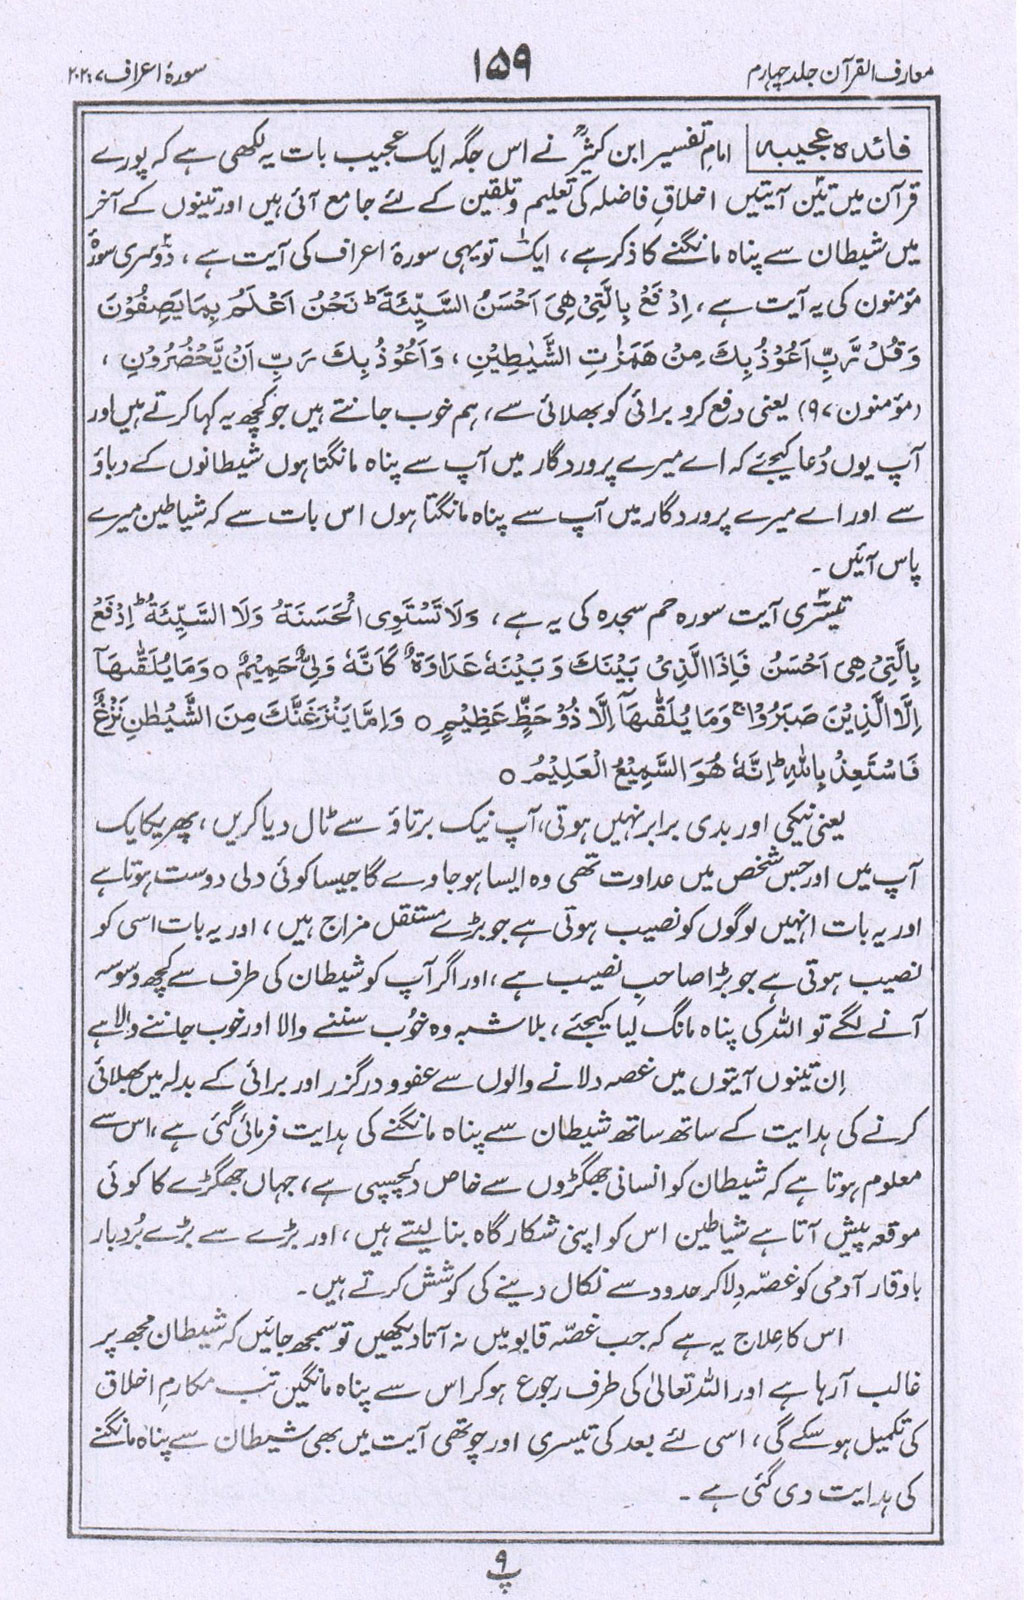 معارف القرآن جلد چہارم
۱۵۹
سورۂ اعراف ۷: ۲۰۲
فائدہ عجیبہ امام تفسیر ابن کثیرؒ نے اس جگہ ایک عجیب بات یہ لکھی ہے کہ پورے
قرآن میں تین آیتیں اخلاقِ فاضلہ کی تعلیم و تلقین کے لئے جامع آئی ہیں اور تینوں کے آخر
میں شیطان سے پناہ مانگنے کا ذکر ہے، ایک تو یہی سورۂ اعراف کی آیت ہے، دوسری سورۂ
مؤمنون کی یہ آیت ہے، اِدْفَعْ بِالَّتِيْ هِيَ اَحْسَنُ السَّيِّئَةَ ؕ نَحْنُ اَعْلَمُ بِمَا يَصِفُوْنَ
وَقُلْ رَّبِّ اَعُوْذُ بِكَ مِنْ هَمَزٰتِ الشَّيٰطِيْنِ، وَاَعُوْذُ بِكَ رَبِّ اَنْ يَّحْضُرُوْنِ،
(مؤمنون ۹۷) یعنی دفع کرو برائی کو بھلائی سے، ہم خوب جانتے ہیں جو کچھ یہ کہا کرتے ہیں اور
آپ یوں دُعا کیجئے کہ اے میرے پروردگار میں آپ سے پناہ مانگتا ہوں شیطانوں کے دباؤ
سے اور اے میرے پروردگار میں آپ سے پناہ مانگتا ہوں اس بات سے کہ شیاطین میرے
پاس آئیں۔
تیسری آیت سورہ حم سجدہ کی یہ ہے، وَلَا تَسْتَوِی الْحَسَنَةُ وَلَا السَّيِّئَةُ ؕ اِدْفَعْ
بِالَّتِيْ هِيَ اَحْسَنُ فَاِذَا الَّذِيْ بَيْنَكَ وَبَيْنَهٗ عَدَاوَةٌ كَاَنَّهٗ وَلِيٌّ حَمِيْمٌ ○ وَمَا يُلَقّٰىهَآ
اِلَّا الَّذِيْنَ صَبَرُوْا ۚ وَمَا يُلَقّٰىهَآ اِلَّا ذُوْ حَظٍّ عَظِيْمٍ ○ وَاِمَّا يَنْزَغَنَّكَ مِنَ الشَّيْطٰنِ نَزْغٌ
فَاسْتَعِذْ بِاللّٰهِ ؕ اِنَّهٗ هُوَ السَّمِيْعُ الْعَلِيْمُ ○
یعنی نیکی اور بدی برابر نہیں ہوتی، آپ نیک برتاؤ سے ٹال دیا کریں، پھر یکایک
آپ میں اور جس شخص میں عداوت تھی وہ ایسا ہو جاوے گا جیسا کوئی دلی دوست ہوتا ہے
اور یہ بات انہیں لوگوں کو نصیب ہوتی ہے جو بڑے مستقل مزاج ہیں، اور یہ بات اسی کو
نصیب ہوتی ہے جو بڑا صاحبِ نصیب ہے، اور اگر آپ کو شیطان کی طرف سے کچھ وسوسہ
آنے لگے تو اللہ کی پناہ مانگ لیا کیجئے، بلاشبہ وہ خوب سننے والا اور خوب جاننے والا ہے
اِن تینوں آیتوں میں غصہ دلانے والوں سے عفو و درگزر اور برائی کے بدلہ میں بھلائی
کرنے کی ہدایت کے ساتھ ساتھ شیطان سے پناہ مانگنے کی ہدایت فرمائی گئی ہے، اس سے
معلوم ہوتا ہے کہ شیطان کو انسانی جھگڑوں سے خاص دلچسپی ہے، جہاں جھگڑے کا کوئی
موقعہ پیش آتا ہے شیاطین اس کو اپنی شکار گاہ بنا لیتے ہیں، اور بڑے سے بڑے بُردبار
باوقار آدمی کو غصّہ دِلا کر حدود سے نکال دینے کی کوشش کرتے ہیں۔
اس کا علاج یہ ہے کہ جب غصّہ قابو میں نہ آتا دیکھیں تو سمجھ جائیں کہ شیطان مجھ پر
غالب آرہا ہے اور اللہ تعالیٰ کی طرف رجوع ہو کر اس سے پناہ مانگیں تب مکارمِ اخلاق
کی تکمیل ہو سکے گی، اسی لئے بعد کی تیسری اور چوتھی آیت میں بھی شیطان سے پناہ مانگنے
کی ہدایت دی گئی ہے۔
پ ۹